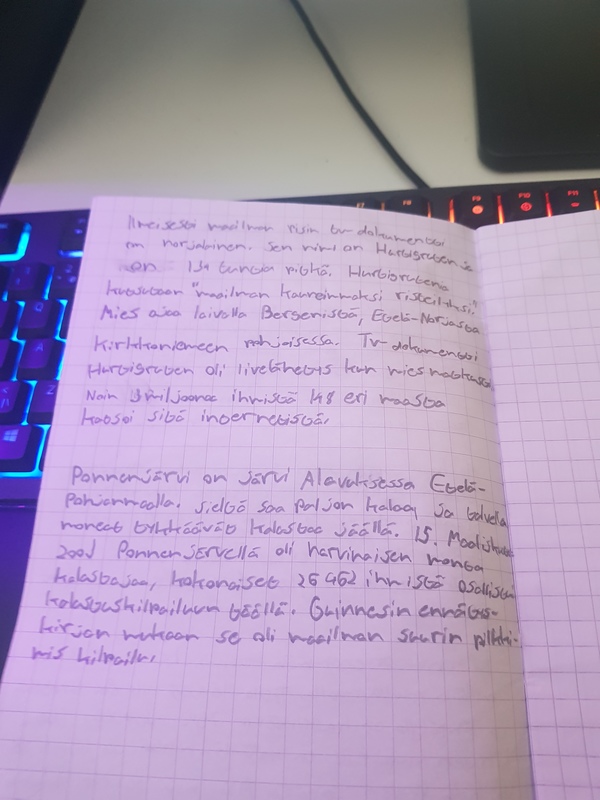 F7
F8
F9
F10
F11
maailman tv-dokumentti
on norjalainen. Sen nimi on Hurtigruten
on 134 tuntia pitkä. Hurtigrutena
kutsutaan "maailman kauneimmaksi
Mies ajaa laivalla Bergenistä, Etelä-Norjasta
Kirkkoniemeen pohjoisessa. Tv-dokumentti
Hurtigruten oli livelähetys kun mies matkusti
Noin 3 miljoonaa ihmistä 148 eri maasta
katsoi sitä internetistä.
Ponnenjärvi on järvi Alavuksessa Etelä-
Pohjanmaalla. Sieltä saa paljon kaloja ja talvella
monet tykkäävät kalastaa jäällä. 15. Maaliskuuta
2009 Ponnenjärvellä oli harvinaisen monta
kalastajaa, kokonaiset 26 462 ihmistä osallistui
kalastuskilpailuun täällä. Guinnesin ennätys-
kirjan mukaan se oli maailman suurin pilkki-
mis kilpailu.